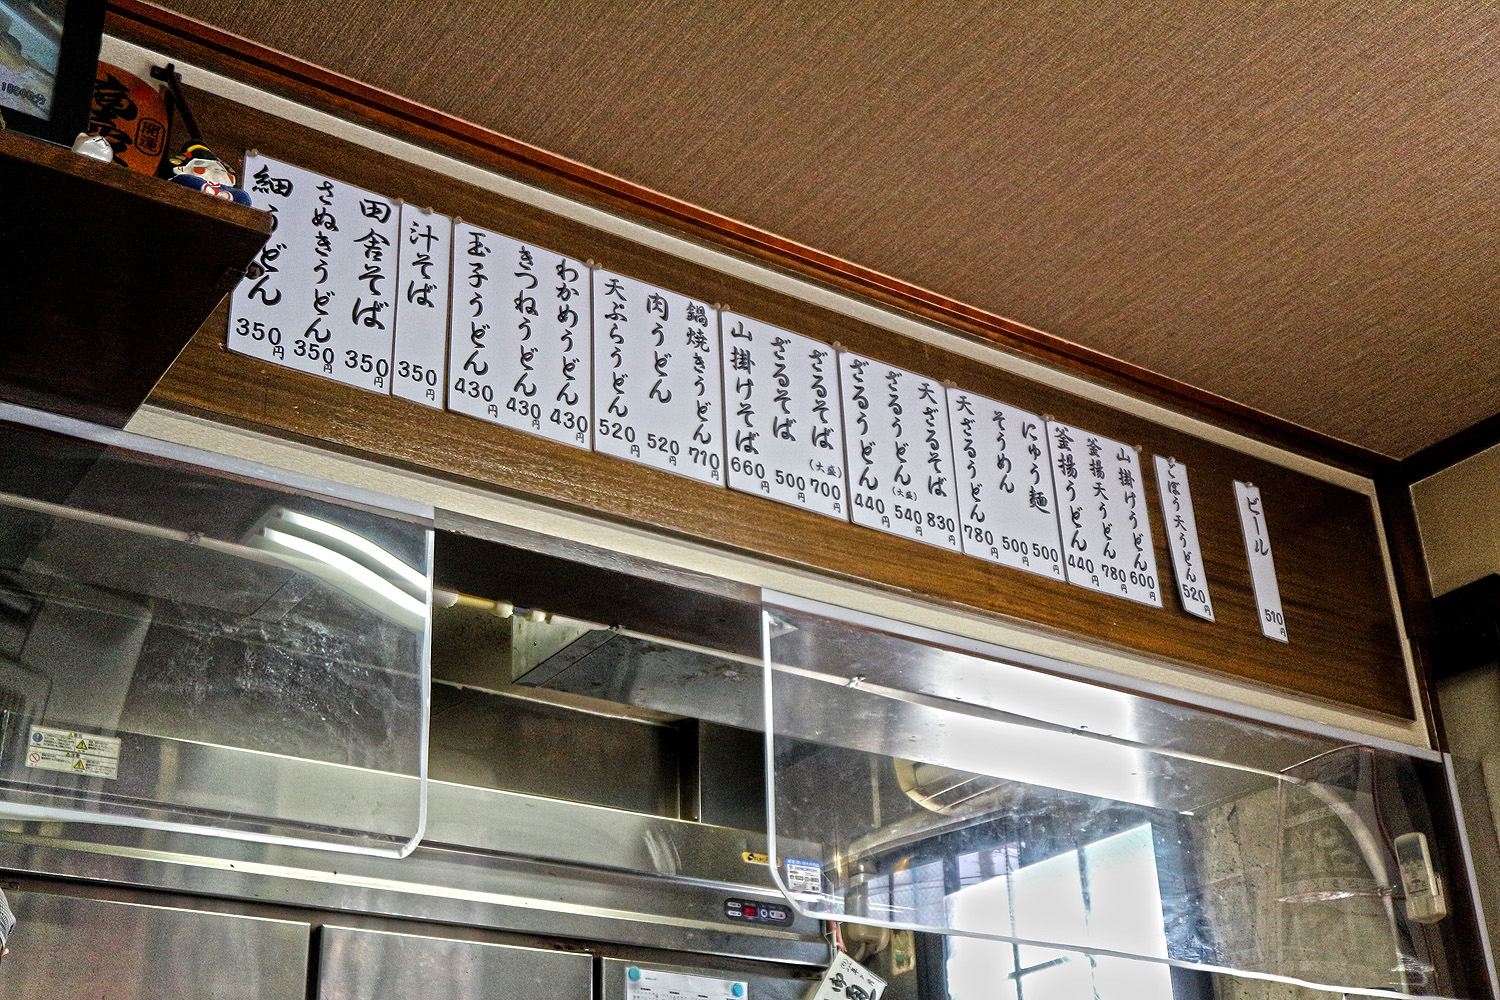 開運
細うどん 350円
さぬきうどん 350円
田舎そば 350円
汁そば 350円
玉子うどん 430円
きつねうどん 430円
わかめうどん 430円
天ぷらうどん 520円
肉うどん 520円
鍋焼きうどん 710円
山掛けそば 660円
ざるそば 500円
ざるそば(大盛) 700円
ざるうどん 440円
ざるうどん(大盛) 540円
天ざるそば 830円
天ざるうどん 780円
そうめん 500円
にゅう麺 500円
釜揚うどん 440円
釜揚天うどん 780円
山掛けうどん 600円
ごぼう天うどん 520円
ビール 510円